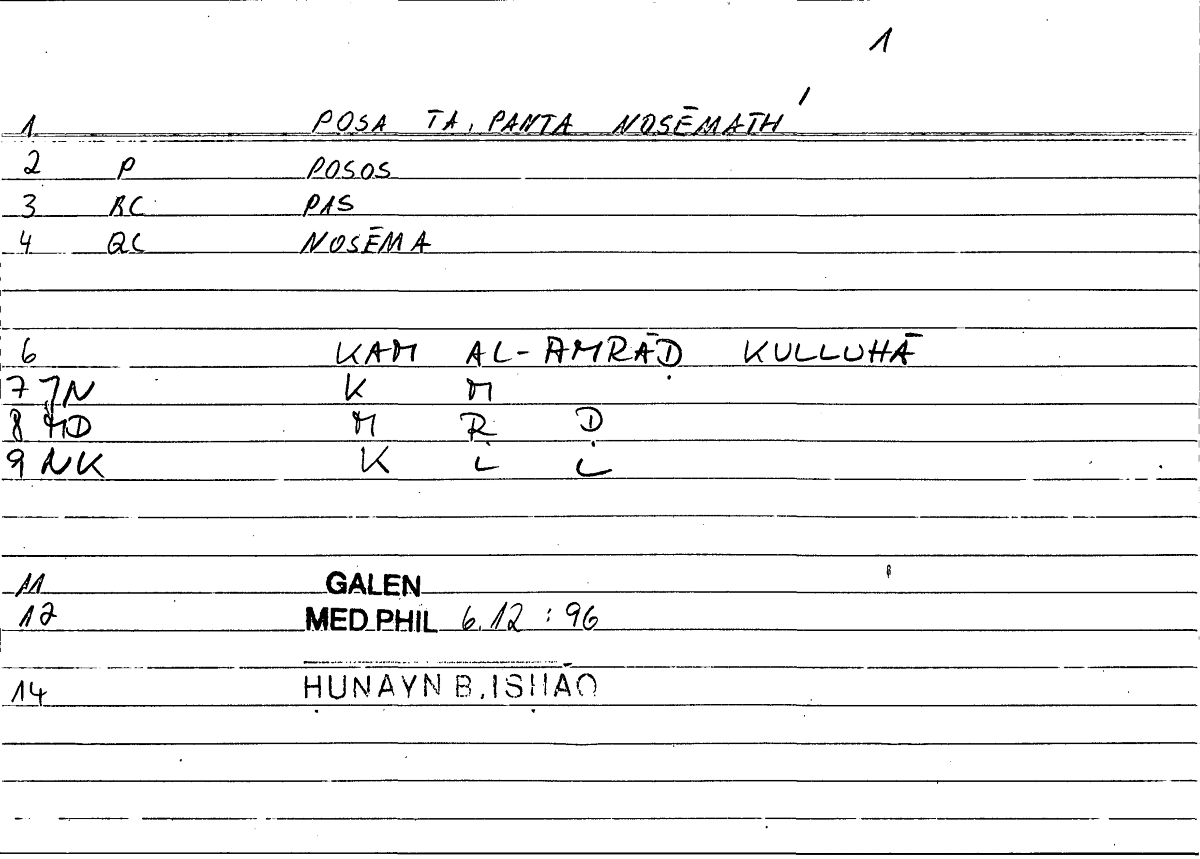 1
1 POSA TA, PANTA NOSĒMATH'
2 P POSOS
3 RC PAS
4 QC NOSĒMA
6 KAM AL-AMRĀḌ KULLUHĀ
7 JN K M
8 MD M R Ḍ
9 NK K L L
11 GALEN
12 MED PHIL 6.12 : 96
14 ḤUNAYN B. ISḤĀQ